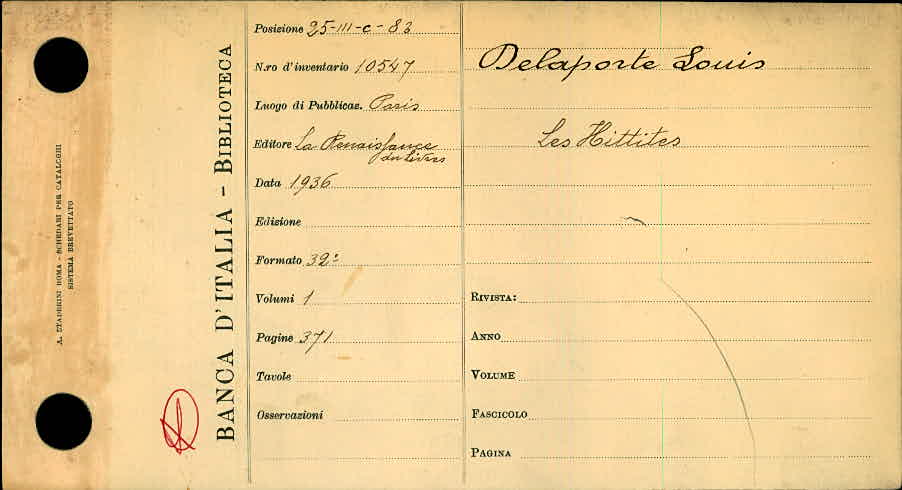 A. STADERINI ROMA - SCHEDARI PER CATALOGHI
SISTEMA BREVETTATO
BANCA D'ITALIA - BIBLIOTECA
Posizione 25-III-c-83
N.ro d'inventario 10547
Luogo di Pubblicaz. Paris
Editore La Renaissance
du Livre
Data 1936
Edizione
Formato 32º
Volumi 1
Pagine 371
Tavole
Osservazioni
Delaporte Louis
Les Hittites
RIVISTA:
ANNO
VOLUME
FASCICOLO
PAGINA